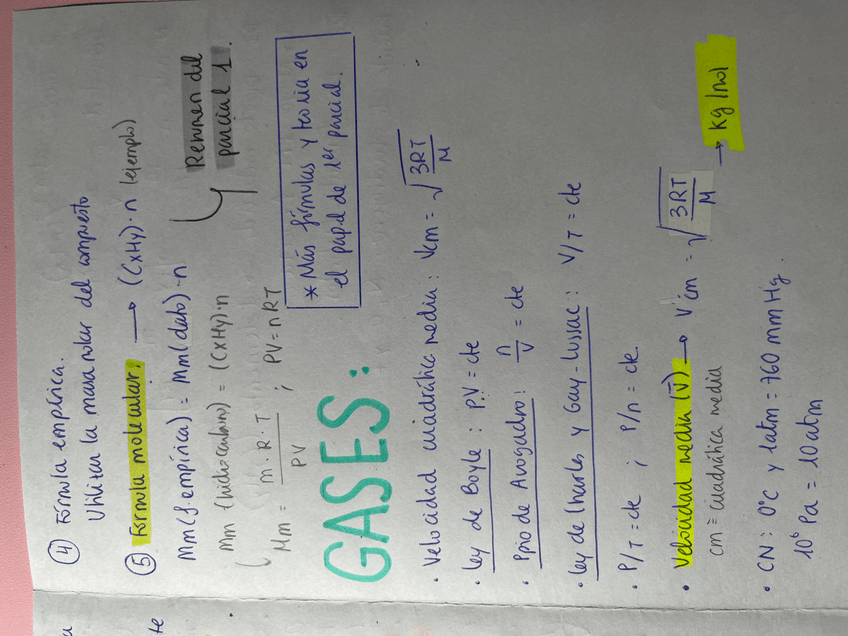 ④ Fórmula empírica.
Utilizar la masa molar del compuesto
⑤ Fórmula molecular: → (CxHy)·n (ejemplo)
Mm(f.empírica) = Mm(dato)·n
Resumen del
parcial 1.
Mm (hidrocarburo) = (CxHy)·n
Mm = m·R·T / PV ; PV=nRT
* Más fórmulas y teoría en
el papel de 1er parcial.
GASES:
· Velocidad cuadrática media: Vcm = √(3RT/M)
· Ley de Boyle: P.V = cte
· Ppio de Avogadro: n/V = cte
· Ley de Charles y Gay-Lussac: V/T = cte
· P/T = cte ; P/n = cte.
· Velocidad media (V̄) → Vcm = √(3RT/M) → kg/mol
cm = cuadrática media
· CN: 0°C y 1atm = 760 mmHg.
10⁶ Pa = 10 atm
a
te